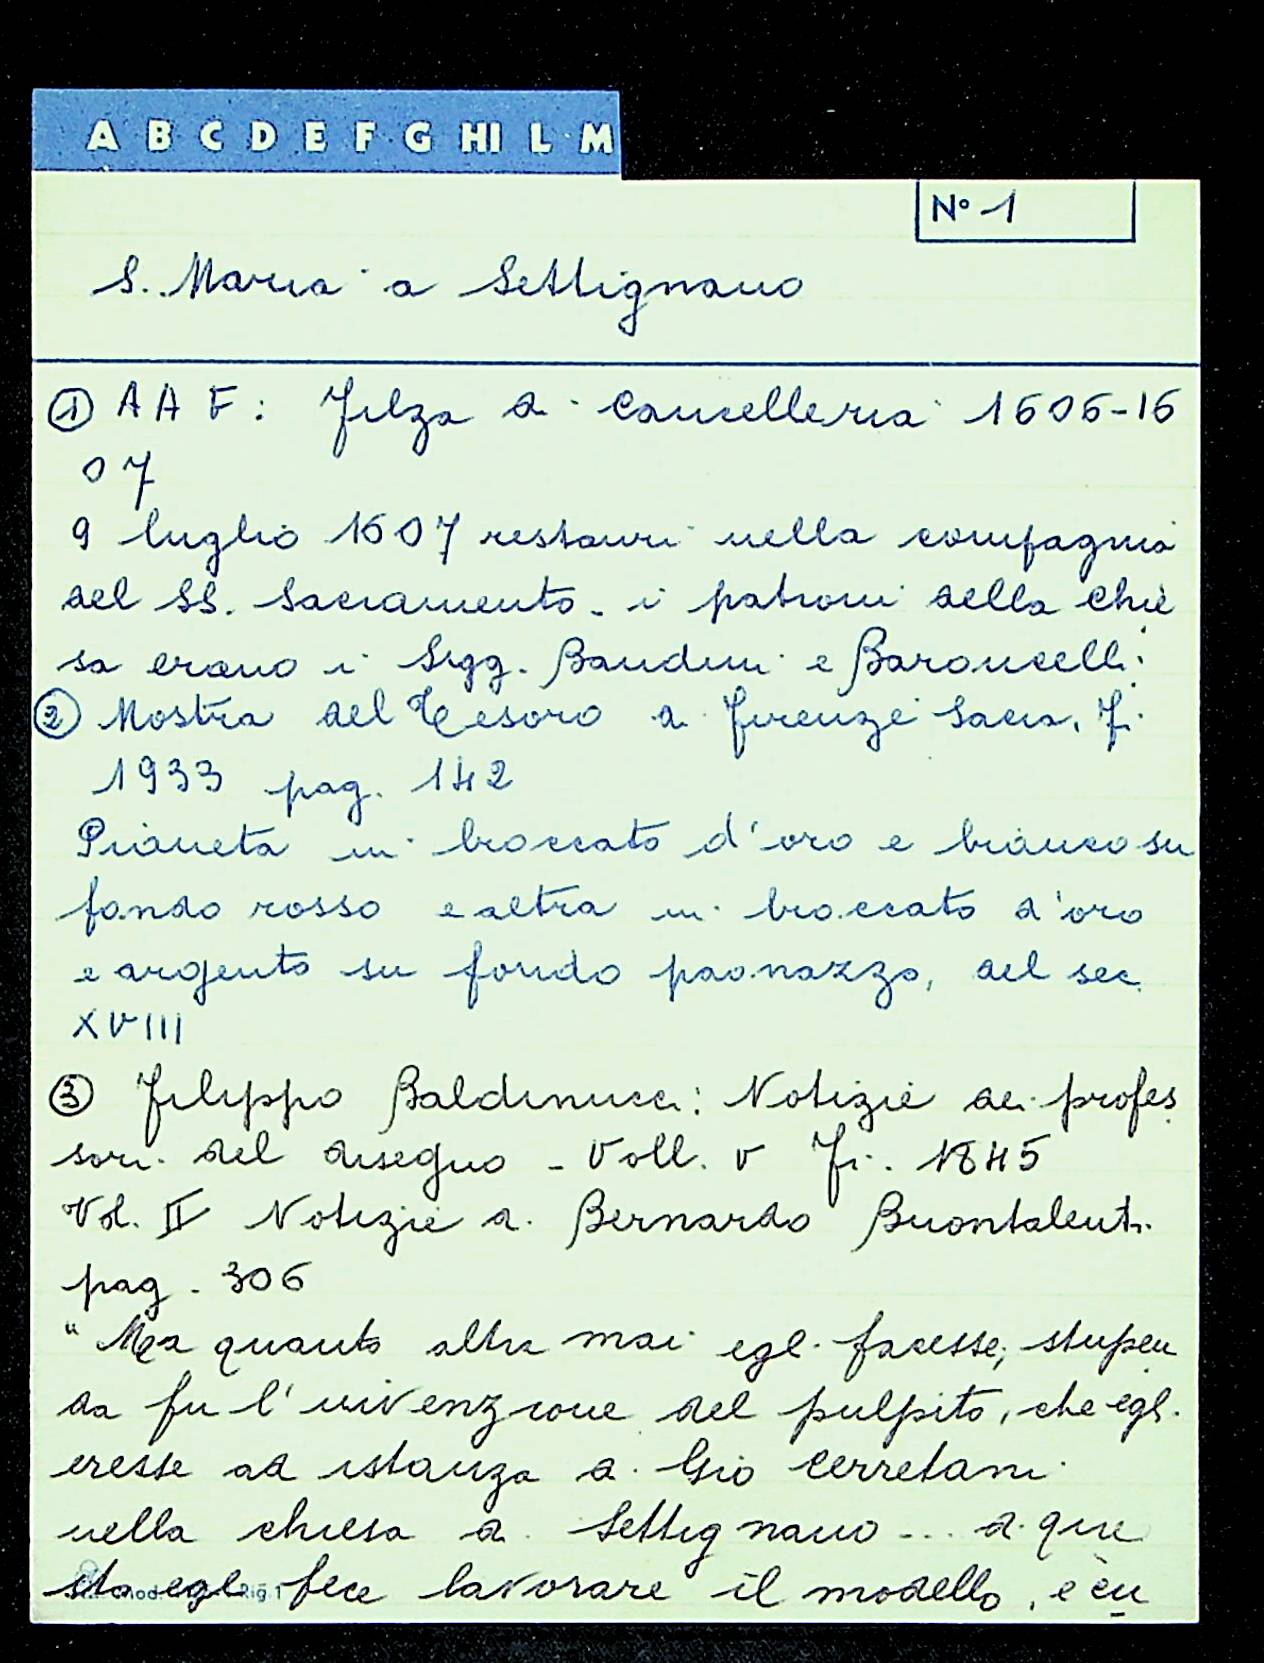 A B C D E F G HI L M
N° 1
S. Maria a Settignano
① A A F: Filza di Cancelleria 1606-16
07
9 luglio 1607 restauri nella compagnia
del SS. Sacramento - i patroni della chie
sa erano i Sigg. Bandini e Baroncelli.
② Mostra del Tesoro di Firenze Sacra, Fi.
1933 pag. 142
Pianeta in broccato d'oro e bianco su
fondo rosso e altra in broccato d'oro
e argento su fondo paonazzo, del sec.
XVIII
③ Filippo Baldinucci: Notizie dei profes
sori del disegno - Voll. V Fi. 1845
Vol. II Notizie di Bernardo Buontalenti
pag. 306
"Ma quanto altri mai egli facesse, stupen
da fu l'invenzione del pulpito, che egli
eresse ad istanza di Gio Cerretani
nella chiesa di Settignano... di que
sta egli fece lavorare il modello, e in